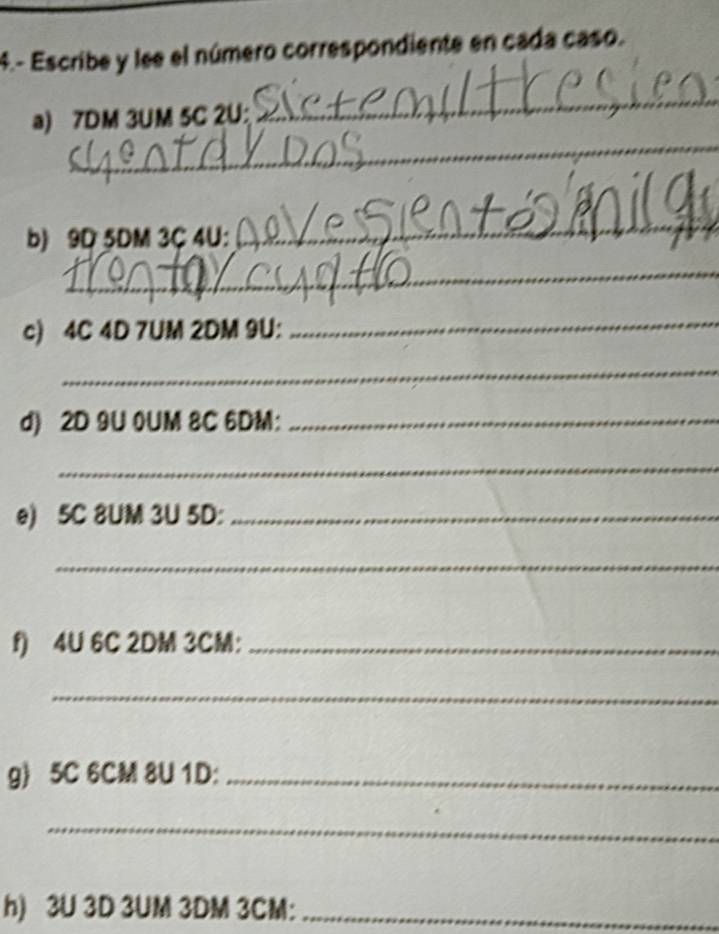 4.- Escribe y lee el número correspondiente en cada caso.
a) 7DM 3UM 5C 2U: Sietemiltrecien
cuentaydos
b) 9D 5DM 3C 4U: novesientos mil
trentaycuatro
c) 4C 4D 7UM 2DM 9U:
d) 2D 9U 0UM 8C 6DM:
e) 5C 8UM 3U 5D:
f) 4U 6C 2DM 3CM:
g) 5C 6CM 8U 1D:
h) 3U 3D 3UM 3DM 3CM: